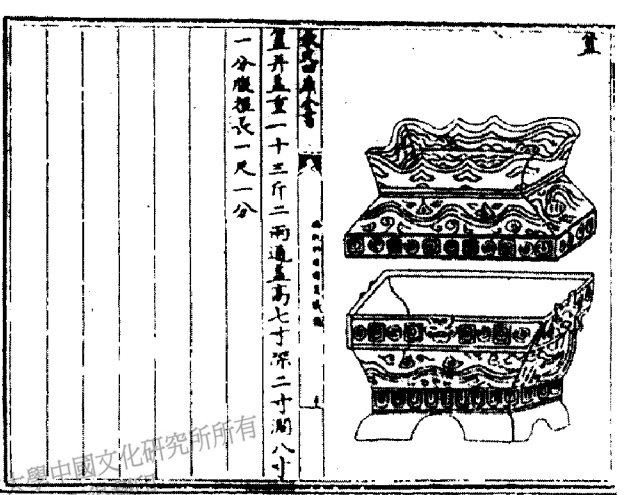 簠
欽定四庫全書
簠并蓋重一十三斤二兩通蓋高七寸深二寸濶八寸
一分腹徑長一尺一分
大學中國文化研究所所有